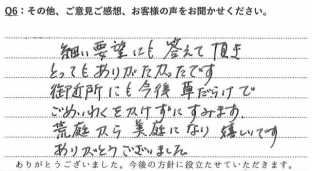 Q6：その他、ご意見ご感想、お客様の声をお聞かせください。
細い要望にも答えて頂き
とってもありがたかったです
御近所にも今後草だらけで
ごめいわくをかけずにすみます。
荒庭から美庭になり嬉しいです
ありがとうございました。
ありがとうございました。今後の方針に役立たせていただきます。